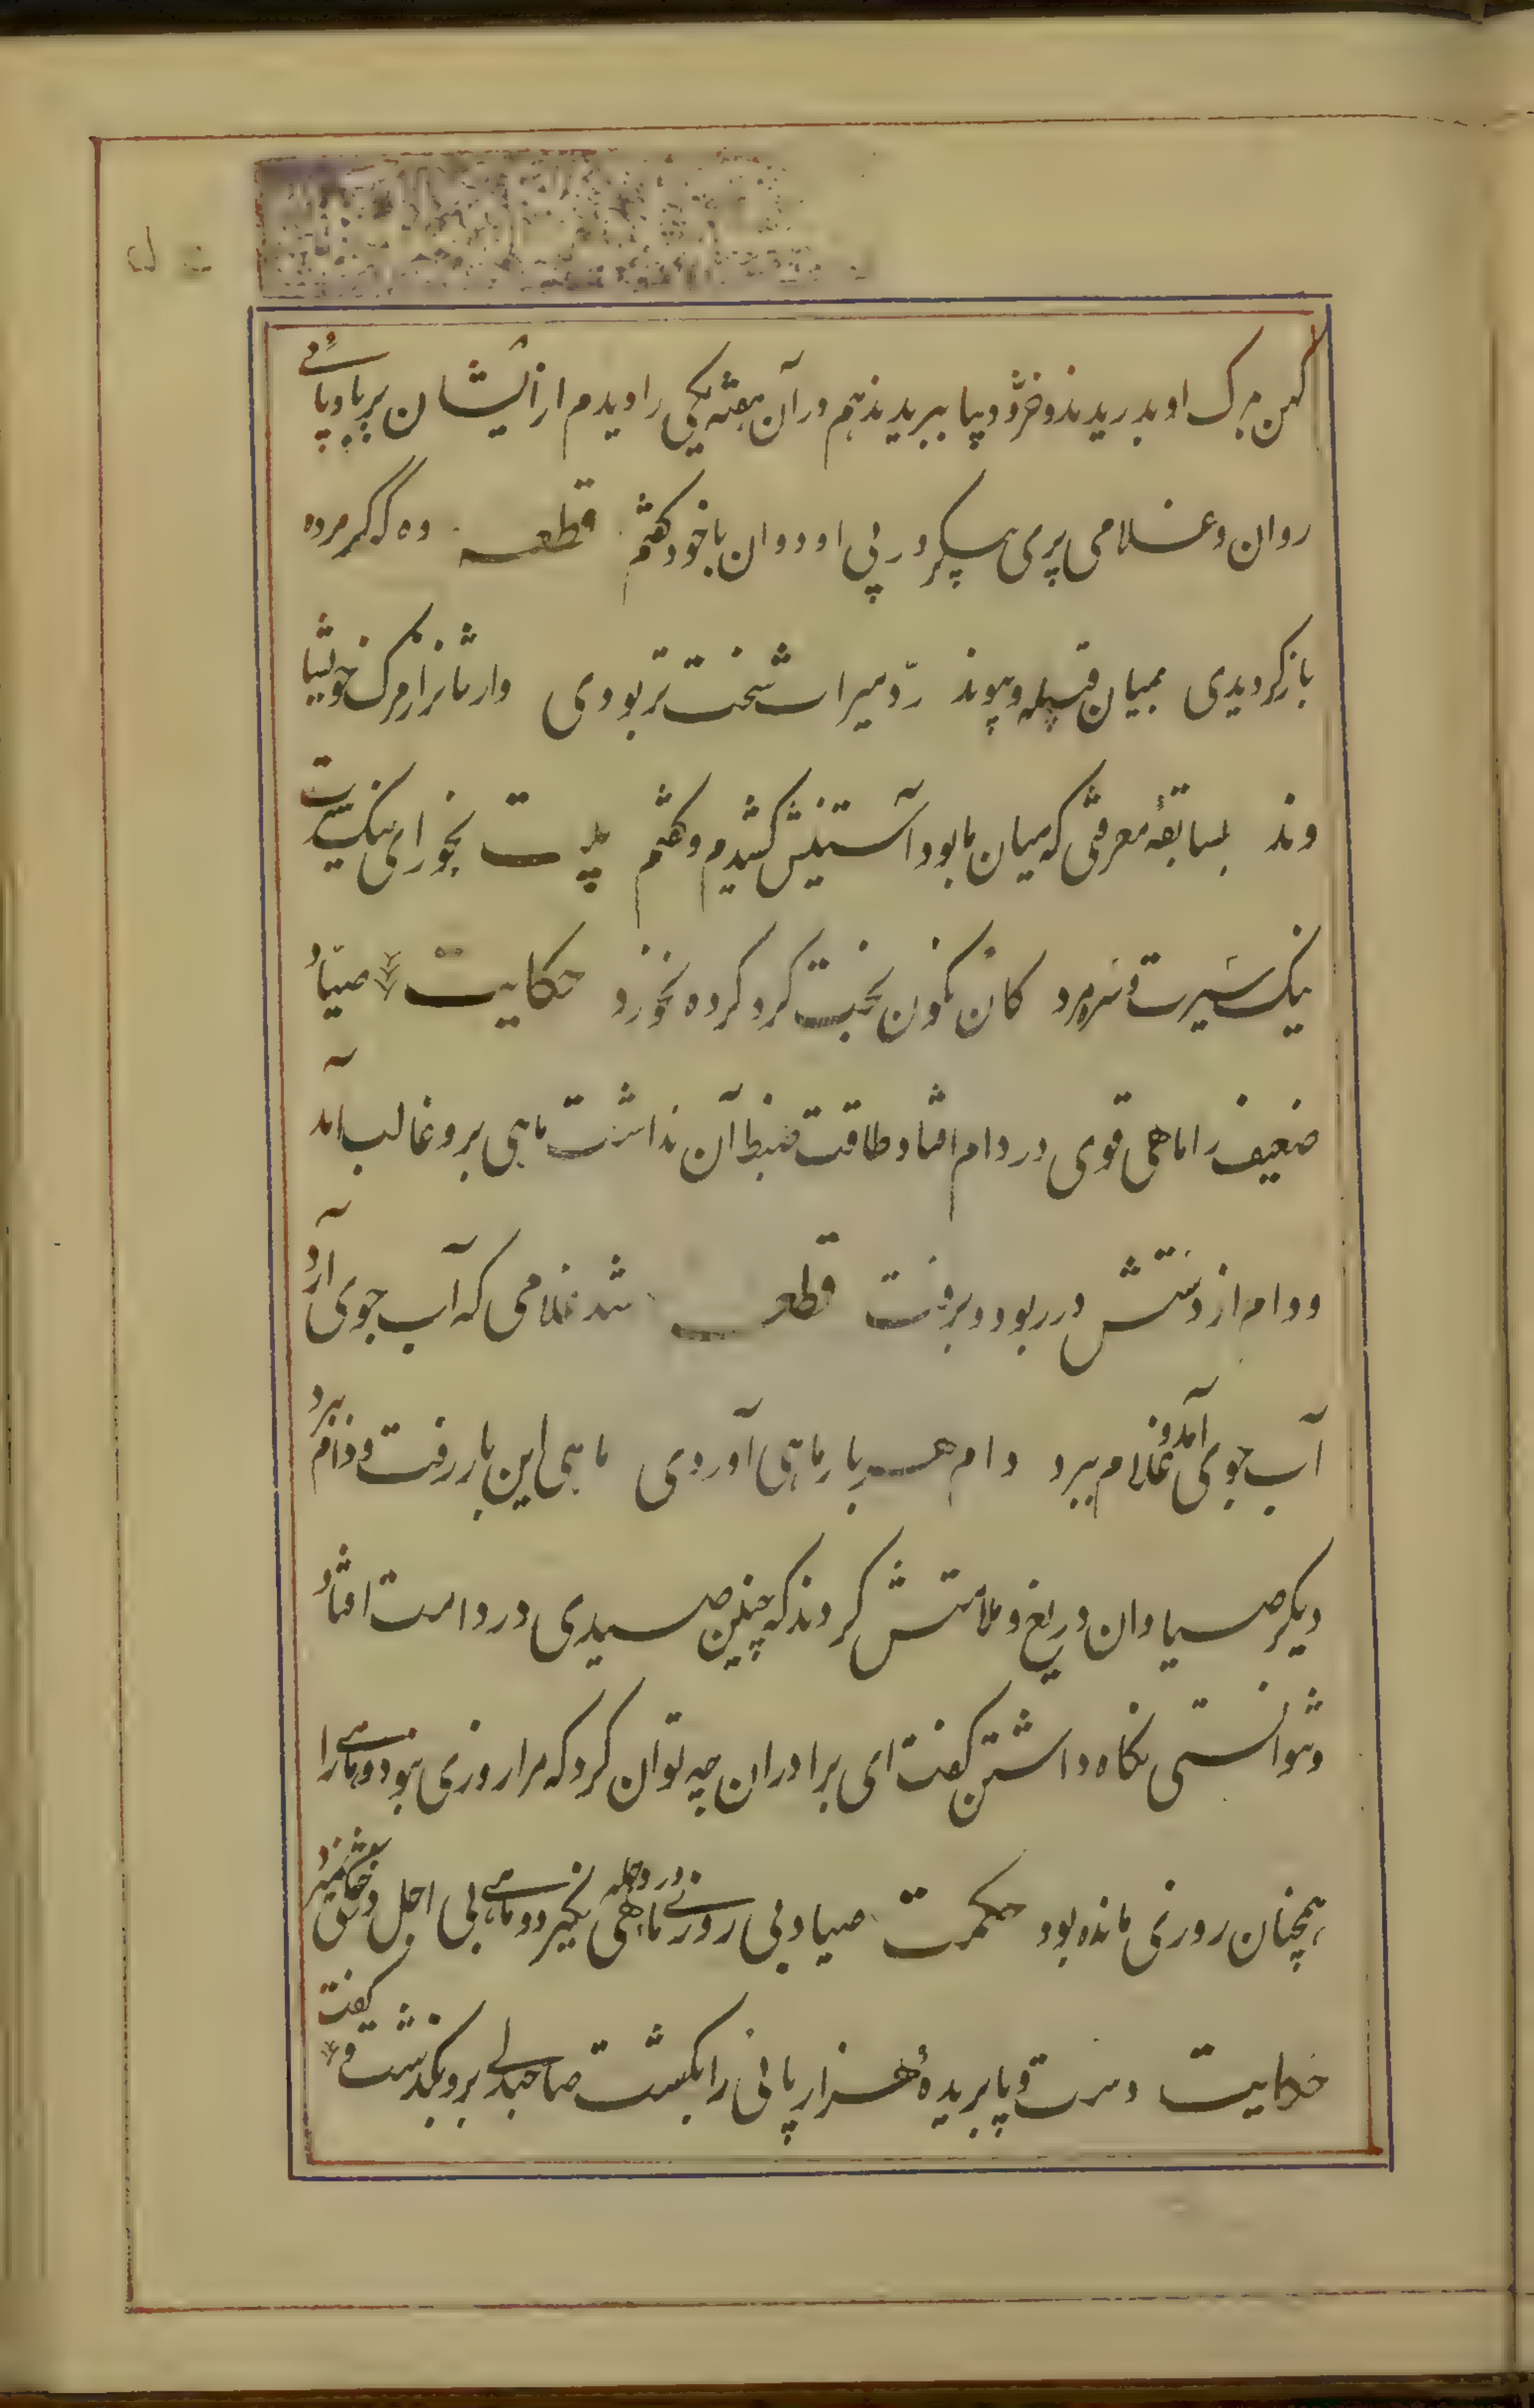 کهن بمرک او بدریدند و خز و دیبا ببریدند هم در آن هفته یکی را دیدم از ایشان بر باد پائی
روان و غلامی پری پیکر در پی او دوان با خود گفتم قطعه وه که گر مرده
باز کردیدی بمیان قبیله و پیوند ردّ میراث سخت تر بودی وارثانرا ز مرک خویشا
وند بسابقهٔ معرفتی که میان ما بود آستینش کشیدم و گفتم بیت بخور ای نیک سیرت
نیک سیرت و سره مرد کان نکون بخت کرد کرده نخورد حکایت صیاد
ضعیف را ماهی قوی در دام افتاد طاقت ضبط آن نداشت ماهی برو غالب آمد
و دام از دستش در ربود و برفت قطعه شد غلامی که آب جوی آرد
آب جوی آمد و غلام ببرد دام هر بار ماهی آوردی ماهی این بار رفت و دام ببرد
دیکر صیادان دریغ و ملامتش کردند که چنین صیدی در دامت افتاد
و نتوانستی نکاه داشتن کفت ای برادران چه توان کرد که مرا روزی نبود و ماهی را
همچنان روزی مانده بود حکمت صیاد بی روزی در دجله ماهی نکیرد و ماهی بی اجل در خشکی نمیرد
حکایت دست و پا بریدهٔ هزار پائی را بکشت صاحبدلی برو بکذشت و کفت